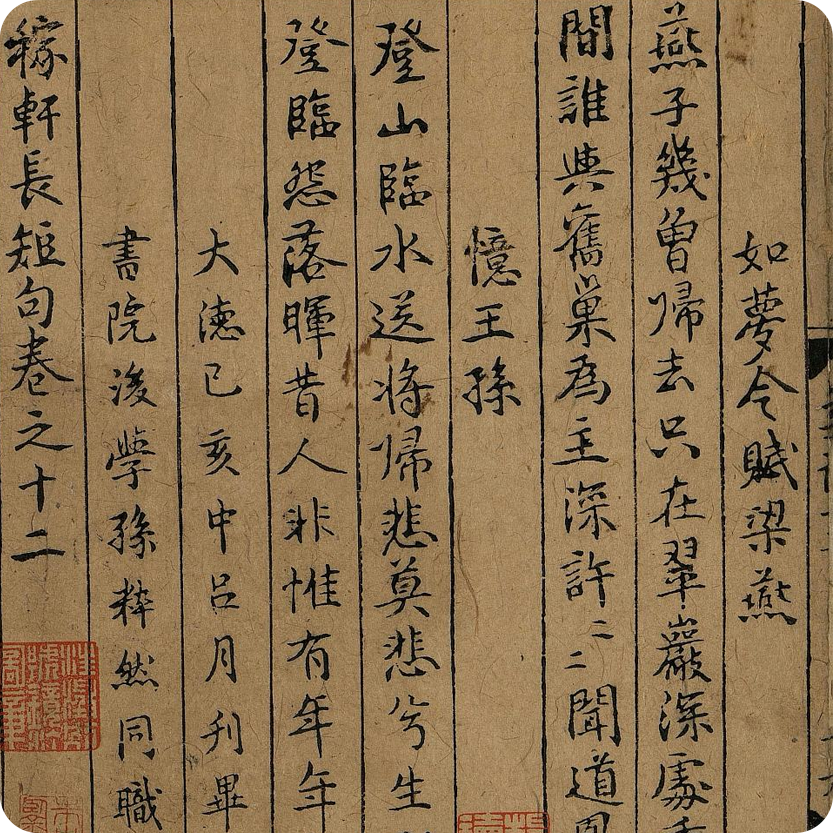 如夢令賦梁燕
燕子幾曾歸去只在翠巖深處
間誰與舊巢為主深許二二聞道
憶王孫
登山臨水送將歸悲莫悲兮生
登臨怨落暉昔人非惟有年年
大德已亥中呂月刋畢
書院後學孫粹然同職
稼軒長短句卷之十二